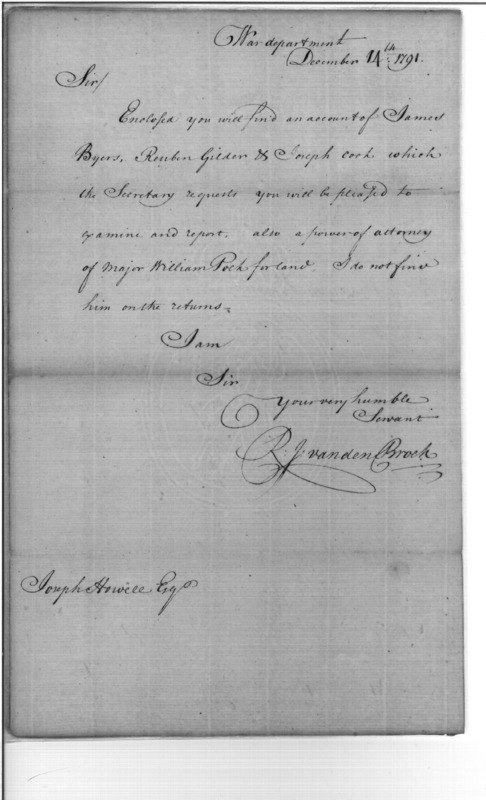 War department
December 14th 1791.
Sir/
Enclosed you will find an account of James
Byers, Reuben Gilder & Joseph Cook which
the Secretary requests you will be pleased to
examine and report. also a power of attorney
of Major William Polk for land. I do not find
him on the returns.
I am
Sir
Your very humble
Servant
R. J. vanden Broek
Joseph Howell Esqr